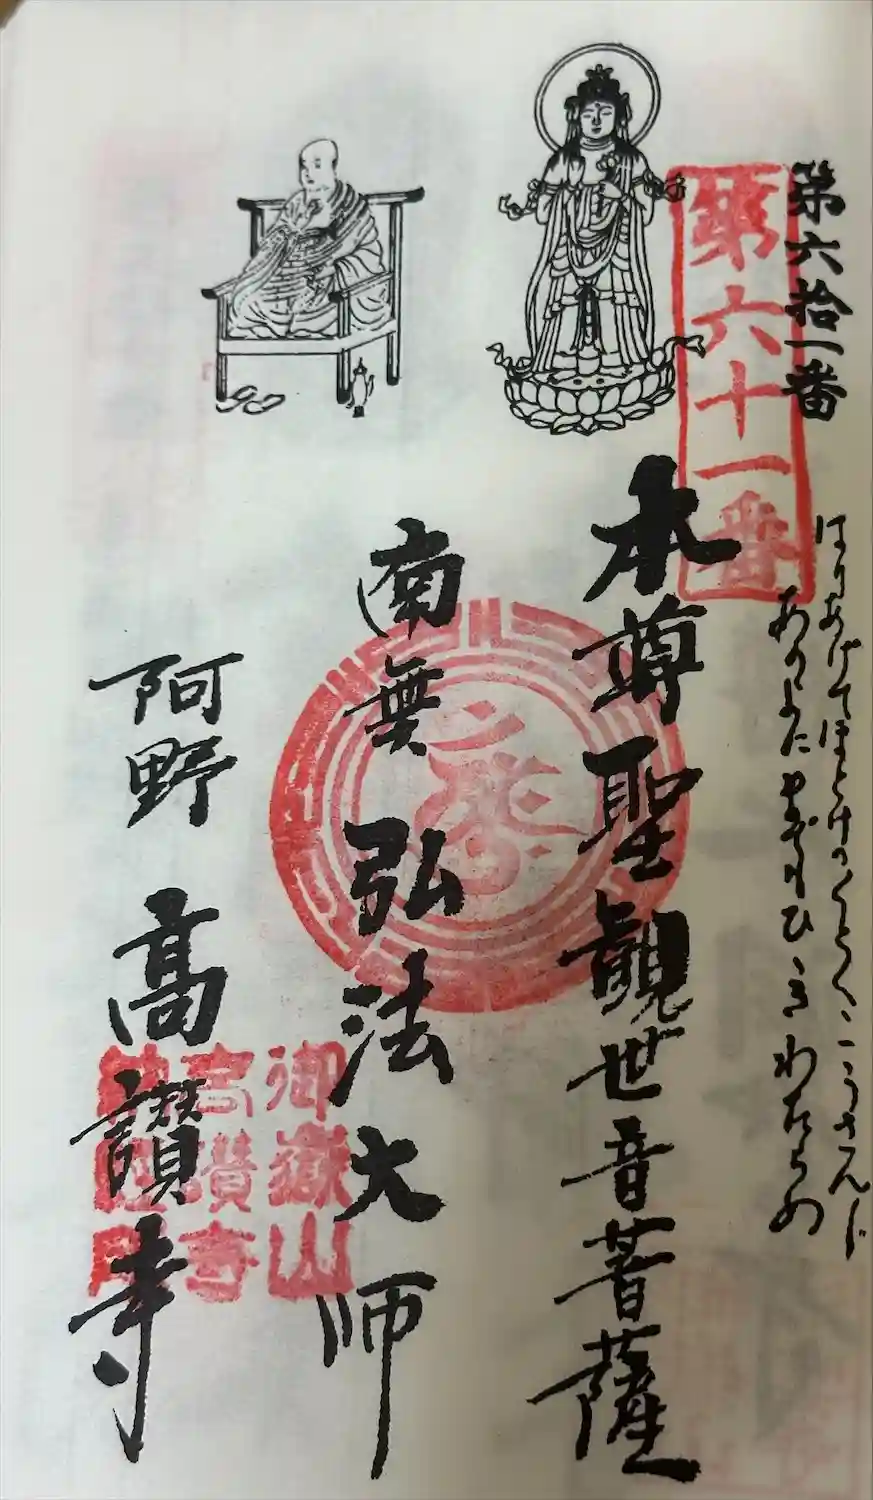 第六拾一番
第六十一番
はりあげてほとけのくどくこうさんじ
あのよにまでもひゞきわたらめ
本尊聖観世音菩薩
南無弘法大師
阿野高讃寺
御嶽山
高讃寺